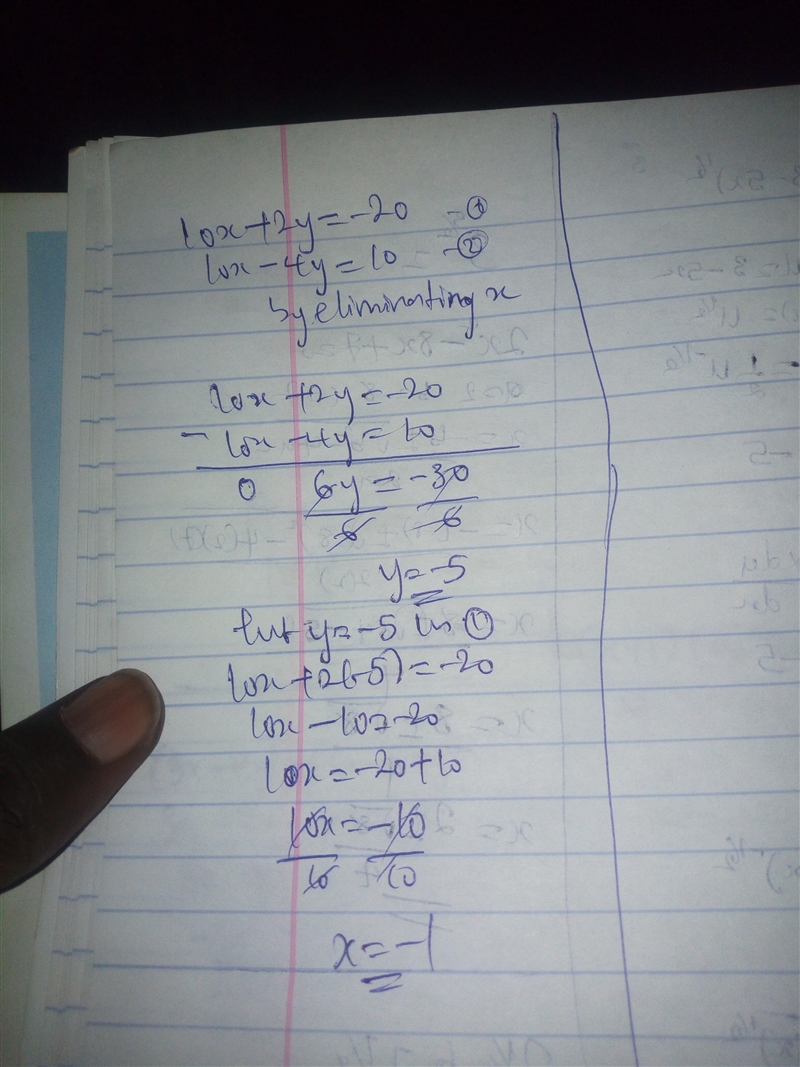 10x+2y=-20 -①
10x-4y=10 -②
by eliminating x
10x+2y=-20
- 10x-4y=10
0 6y=-30
6 6
y=-5
put y=-5 in ①
10x+2(-5)=-20
10x-10=-20
10x=-20+10
10x=-10
10 10
x=-1